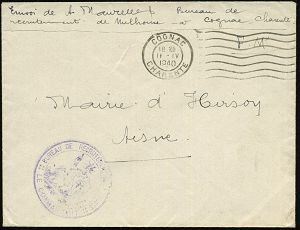 Envoi de A. Bureau de
recrutement de Mulhouse à Cognac Charente
COGNAC
18 30
11 - IV
1940
CHARENTE
F M
Mairie d'Hirson
Aisne
BUREAU DE RECRUTEMENT